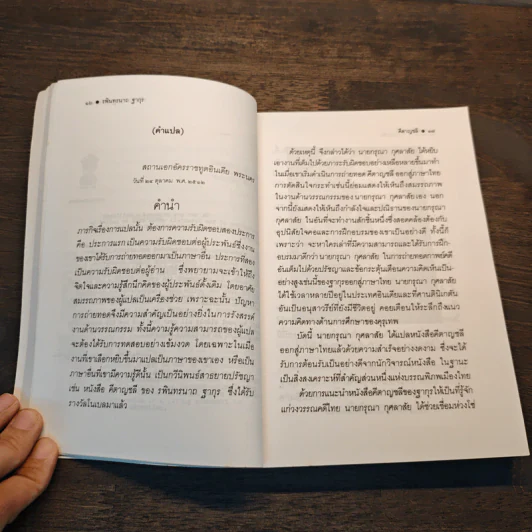 ๑๒ ● รพินทรนาถ ฐากุร
(คำแปล)
สถานเอกอัครราชทูตอินเดีย พระนคร
คำนำ
ภารกิจเรื่องการแปลนั้น ต้องการความรับผิดชอบสองประการ
คือ ประการแรก เป็นความรับผิดชอบต่อผู้ประพันธ์ซึ่งงาน
ของเขาได้รับการถ่ายทอดออกมาเป็นภาษาอื่น ประการที่สอง
เป็นความรับผิดชอบต่อผู้อ่าน ซึ่งพยายามจะเข้าให้ถึง
จิตใจและความรู้สึกนึกคิดของผู้ประพันธ์ดั้งเดิม โดยอาศัย
สมรรถภาพของผู้แปลเป็นเครื่องช่วย เพราะฉะนั้น ปัญหา
การถ่ายทอดจึงมีความสำคัญเป็นอย่างยิ่งในการรังสรรค์
งานด้านวรรณกรรม ทั้งนี้ความรู้ความสามารถของผู้แปล
จะต้องได้รับการทดสอบอย่างเข้มงวด โดยเฉพาะในเมื่อ
งานที่เขาเลือกหยิบขึ้นมาแปลเป็นภาษาของเขาเอง หรือเป็น
ภาษาอื่นที่เขามีความรู้ดีนั้น เป็นกวีนิพนธ์สาขายายปรัชญา
เช่น หนังสือ คีตาญชลี ของ รพินทรนาถ ฐากุร ซึ่งได้รับ
รางวัลโนเบลมาแล้ว
คีตาญชลี ● ๑๓
ด้วยเหตุนี้ จึงกล่าวได้ว่า นายกรุณา กุศลาสัย ได้หยิบ
เอางานที่เต็มไปด้วยภาระรับผิดชอบอย่างเหลือหลายขึ้นมาทำ
ในเมื่อเขาเริ่มดำเนินการถ่ายทอด คีตาญชลี ออกสู่ภาษาไทย
การตัดสินใจกระทำเช่นนี้ย่อมแสดงให้เห็นถึงสมรรถภาพ
ในงานด้านวรรณกรรมของ นายกรุณา กุศลาสัย เอง นอก
จากนี้ยังแสดงให้เห็นถึงกำลังใจและปณิธานของนายกรุณา
กุศลาสัย ในอันที่จะทำงานสักชิ้นหนึ่งซึ่งสอดคล้องต้องกับ
อุปนิสัยใจคอและการฝึกอบรมของเขาเป็นอย่างดี ทั้งนี้ก็
เพราะว่า จะหาใครเล่าที่มีความสามารถและได้รับการฝึก
อบรมมาดีกว่า นายกรุณา กุศลาสัย ในการถ่ายทอดกาพย์คดี
อันเต็มไปด้วยปรัชญาและข้อกระตุ้นเตือนความคิดเห็นเป็น
อย่างสูงเช่นนี้ของฐากุรออกสู่ภาษาไทย นายกรุณา กุศลาสัย
ได้ใช้เวลาหลายปีอยู่ในประเทศอินเดียและที่ศานตินิเกตัน
อันเป็นอนุสาวรีย์ที่ยังมีชีวิตอยู่ คอยเตือนให้ระลึกถึงแนว
ความคิดทางด้านการศึกษาของคุรุเทพ
บัดนี้ นายกรุณา กุศลาสัย ได้แปลหนังสือคีตาญชลี
ออกสู่ภาษาไทยแล้วด้วยความสำเร็จอย่างงดงาม ซึ่งจะได้
รับการต้อนรับเป็นอย่างดีจากนักวิจารณ์หนังสือ ในฐานะ
เป็นสิ่งสงเคราะห์ที่สำคัญส่วนหนึ่งแห่งบรรณพิภพเมืองไทย
ด้วยการแนะนำหนังสือคีตาญชลีของฐากุรให้เป็นที่รู้จัก
แก่วงวรรณคดีไทย นายกรุณา กุศลาสัย ได้ช่วยเชื่อมห่วงโซ่